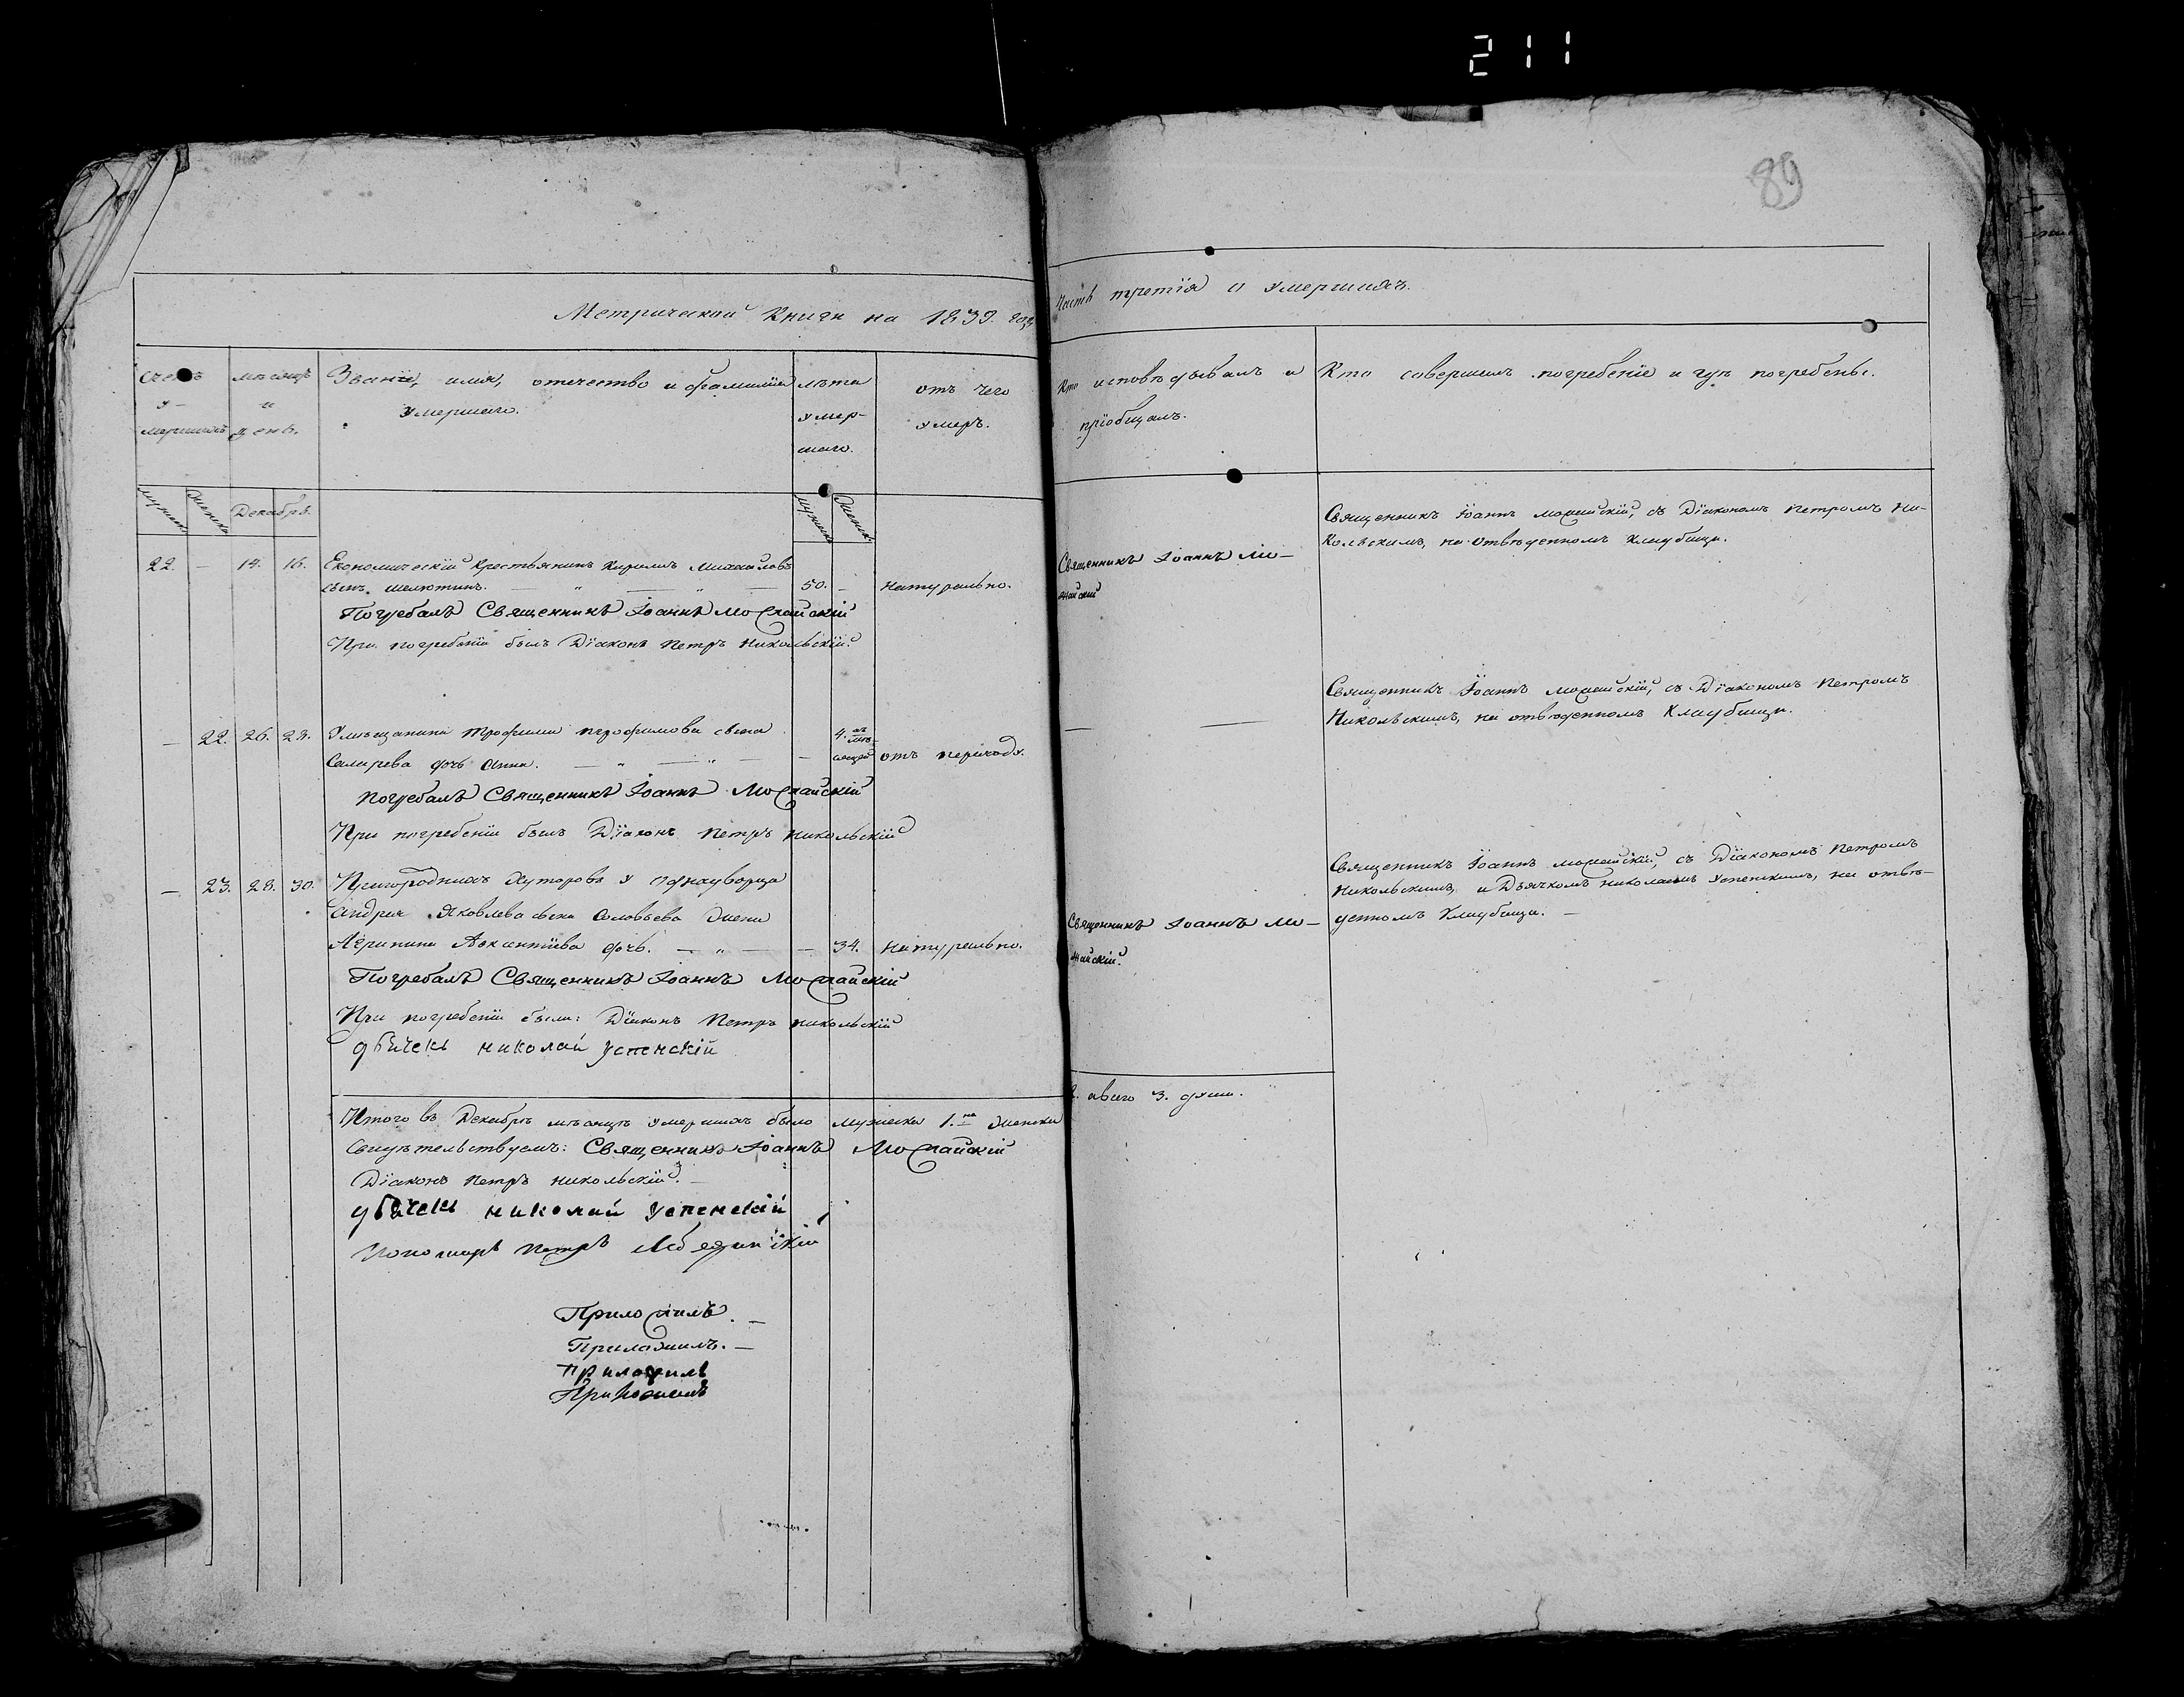 211
89
Метрической Книги на 1839. годъ
Часть третія о умершихъ.
счетъ у-мершихъ
мѣсяцъ и день.
Званіе, имя, отечество и фамилія
умершаго.
лѣта
умер-
шаго.
отъ чего
умеръ.
Кто исповѣдывалъ и
пріобщалъ.
Кто совершалъ погребеніе и гдѣ погребены.
мужеск женска Декабрь. мужеск женск
22. — 14. 16. Економическій крестьянинъ Кирилъ Михайловъ
сынъ — „ — „ — 50. — натурально.
Погребалъ Священникъ Іоаннъ Можайскій
При погребеніи былъ Діаконъ Петръ Никольскій.
Священникъ Іоаннъ Мо-
жайскій
Священникъ Іоаннъ Можайскій, съ Діакономъ Петромъ Ни-
кольскимъ, на отвѣденномъ кладбищи.
— 22. 26. 28. У мѣщанина Трофима сына
дочь Анна. — „ — „ — — 4. мѣ-
сяцей отъ періоду.
Погребалъ Священникъ Іоаннъ Можайскій
При погребеніи былъ Діаконъ Петръ Никольскій
—
Священникъ Іоаннъ Можайскій, съ Діакономъ Петромъ
Никольскимъ, на отвѣденномъ кладбищи.
— 23. 28. 30. Пригородныхъ Хуторовъ у однодворца
Андрея Яковлева сына Соловьева жена
Агрипина Авксентіева дочь. — „ — — 34. натурально.
Погребалъ Священникъ Іоаннъ Можайскій
При погребеніи были: Діаконъ Петръ Никольскій
дьячекъ николай успенскій
Священникъ Іоаннъ Мо-
жайскій.
Священникъ Іоаннъ Можайскій, съ Діакономъ Петромъ
Никольскимъ, и Дьячкомъ Николаемъ Успенскимъ, на отвѣ-
денномъ кладбищи. —
Итого въ Декабрѣ мѣсяцѣ умершихъ было мужеска 1. женска
2. а всего 3. души.
Свидѣтельствуемъ: Священникъ Іоаннъ Можайскій
Діаконъ Петръ Никольскій. —
дьячекъ николай успенскій
Пономарь Петръ
Приложилъ. —
Приложилъ. —
Приложилъ
Приложилъ